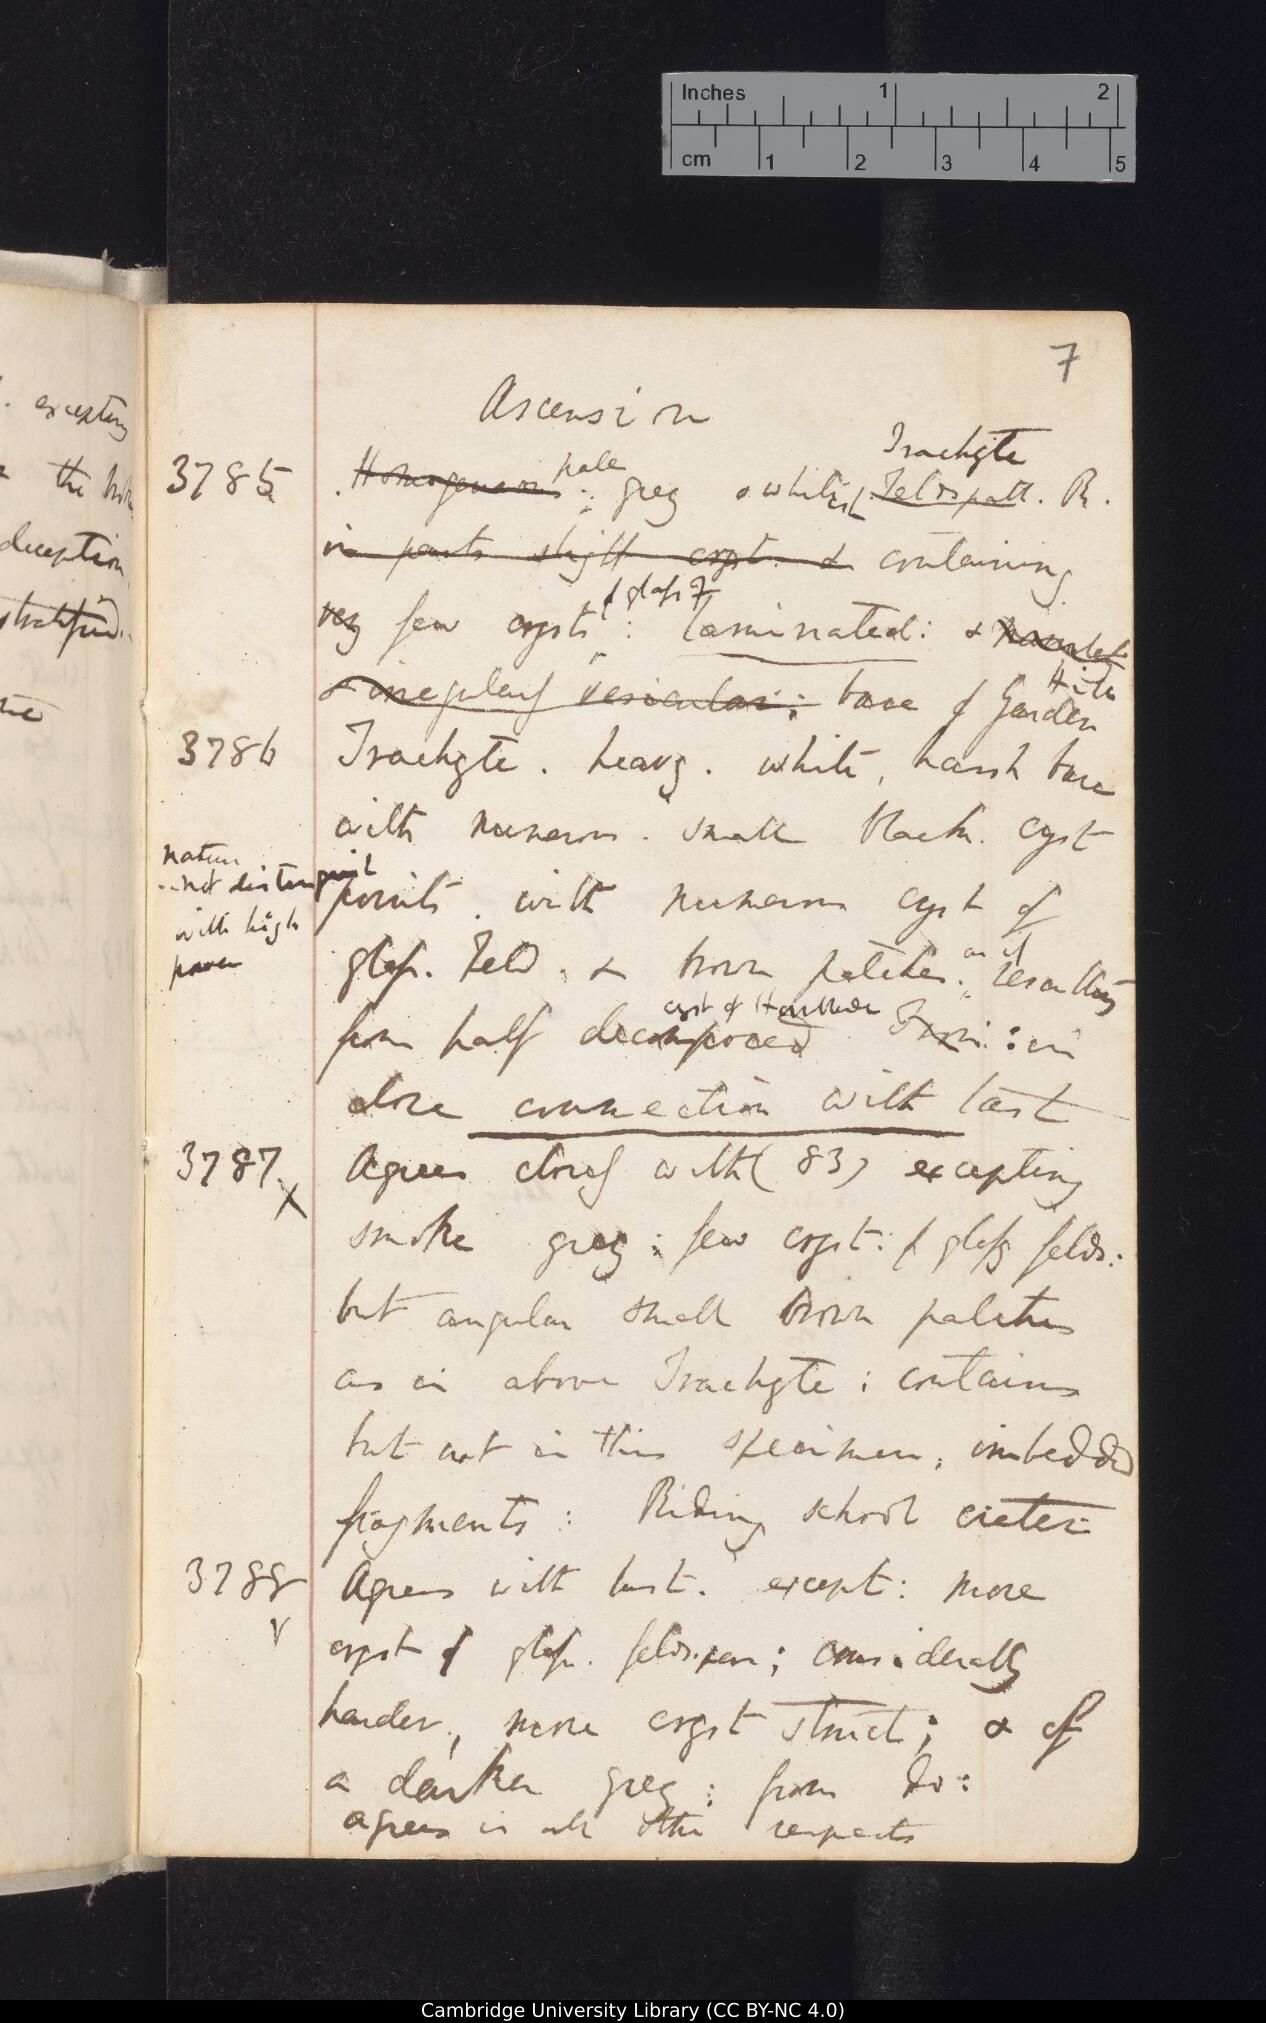 Inches 1 2
cm 1 2 3 4 5
7
Ascension
Trachyte
3785 Homogenous: pale grey & whitish Feldspath. R.
in parts slight cryst. & containing
very few crysts of glassy F: laminated: &
& irregularly vesicular: base of Garden Hills
3786 Trachyte. heavy. white, harsh base
with numerous. small black. cryst
nature
not distinguish
with high
power
points. with numerous cryst of
glass. Feld. & brown patches. as if resulting
from half decomposed cryst of Hornblende Iron: in
close connection with last
3787 X Agrees closely with (83) excepting
smoke grey: few cryst: of glassy felds:
but angular small brown patches
as in above Trachyte: contains
but not in this specimen, imbedded
fragments: Riding school crater:
3788 V Agrees with last. except: more
cryst of glass. feldspar; considerably
harder, more cryst struct; & of
a darker grey: from do:
agrees in all other respects
. excepting
the
deception
stratified.
Cambridge University Library (CC BY-NC 4.0)